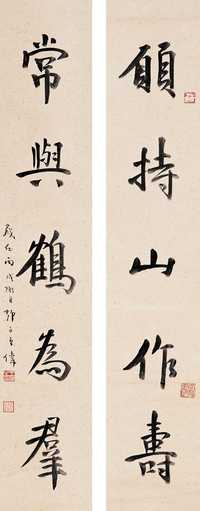 願持山作壽
常與鶴為羣
歲在丙戌